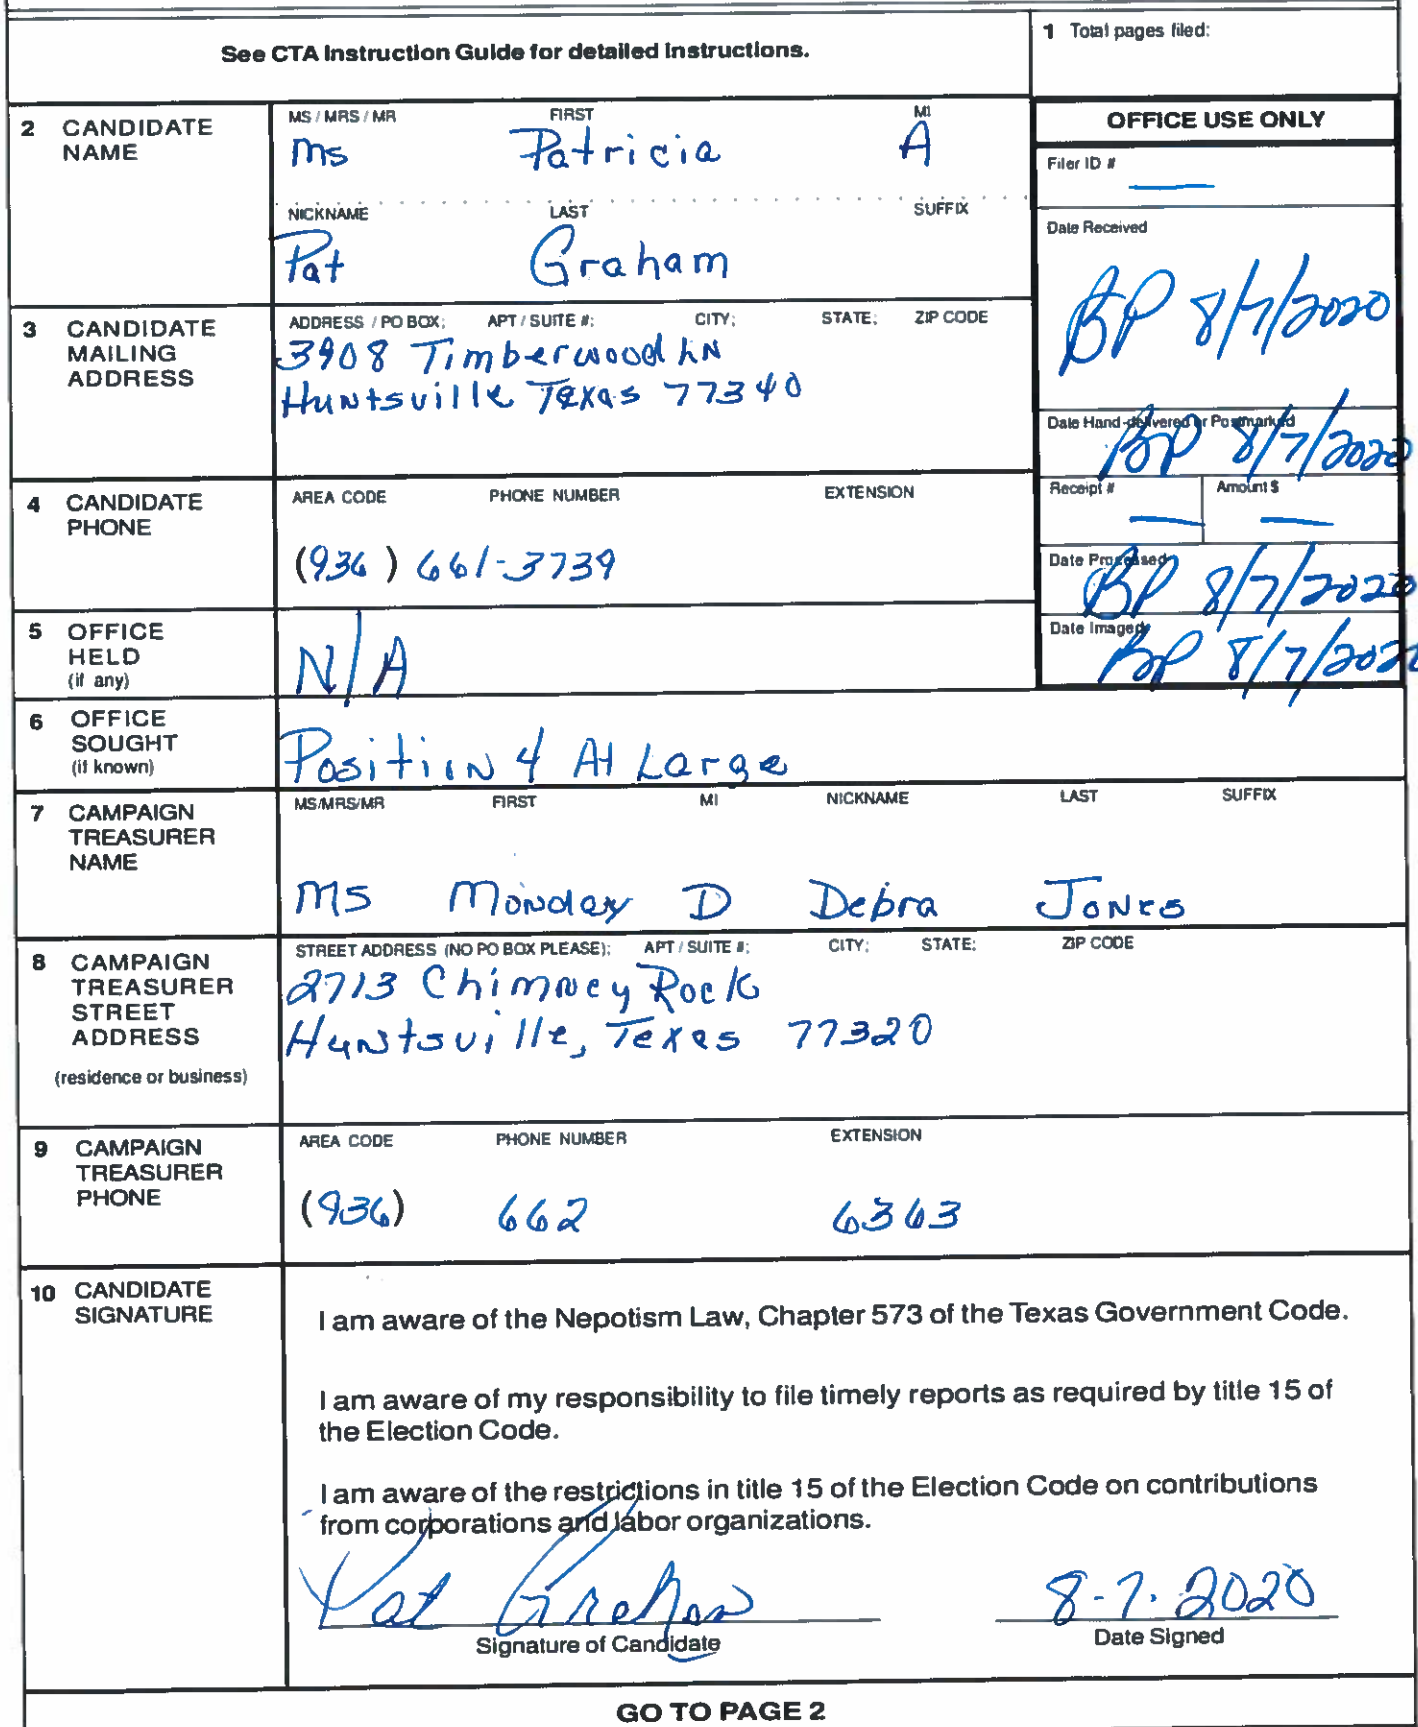 See CTA Instruction Guide for detailed instructions.
1 Total pages filed:
2 CANDIDATE NAME
MS / MRS / MR FIRST MI
Ms Patricia A
NICKNAME LAST SUFFIX
Pat Graham
OFFICE USE ONLY
Filer ID #
Date Received
BP 8/7/2020
Date Hand-delivered or Postmarked
BP 8/7/2020
Receipt # Amount $
Date Processed
BP 8/7/2020
Date Imaged
BP 8/7/2020
3 CANDIDATE MAILING ADDRESS
ADDRESS / PO BOX; APT / SUITE #; CITY; STATE; ZIP CODE
3908 Timberwood LN
Huntsville Texas 77340
4 CANDIDATE PHONE
AREA CODE PHONE NUMBER EXTENSION
(936) 661-3739
5 OFFICE HELD (if any)
N/A
6 OFFICE SOUGHT (if known)
Position 4 At Large
7 CAMPAIGN TREASURER NAME
MS/MRS/MR FIRST MI NICKNAME LAST SUFFIX
MS Monday D Debra Jones
8 CAMPAIGN TREASURER STREET ADDRESS
(residence or business)
STREET ADDRESS (NO PO BOX PLEASE); APT / SUITE #; CITY; STATE; ZIP CODE
2713 Chimney Rock
Huntsville, Texas 77320
9 CAMPAIGN TREASURER PHONE
AREA CODE PHONE NUMBER EXTENSION
(936) 662 6363
10 CANDIDATE SIGNATURE
I am aware of the Nepotism Law, Chapter 573 of the Texas Government Code.
I am aware of my responsibility to file timely reports as required by title 15 of
the Election Code.
I am aware of the restrictions in title 15 of the Election Code on contributions
from corporations and labor organizations.
Pat Graham 8-7-2020
Signature of Candidate Date Signed
GO TO PAGE 2